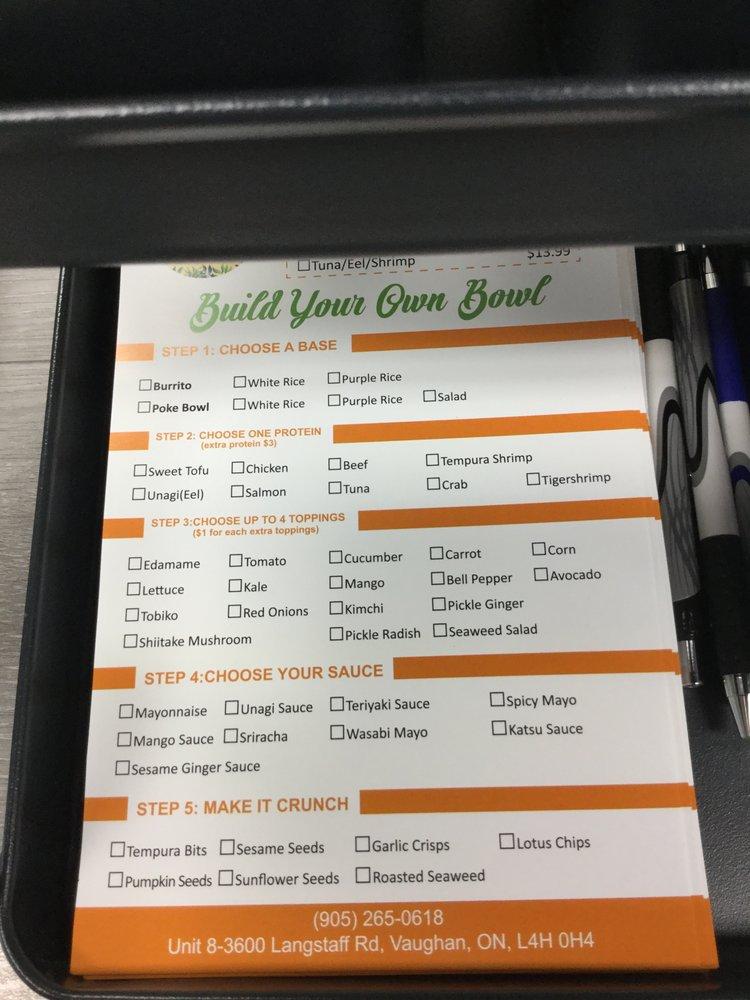 $13.99
☐Tuna/Eel/Shrimp
Build Your Own Bowl
STEP 1: CHOOSE A BASE
☐Burrito ☐White Rice ☐Purple Rice
☐Poke Bowl ☐White Rice ☐Purple Rice ☐Salad
STEP 2: CHOOSE ONE PROTEIN
(extra protein $3)
☐Sweet Tofu ☐Chicken ☐Beef ☐Tempura Shrimp
☐Unagi(Eel) ☐Salmon ☐Tuna ☐Crab ☐Tigershrimp
STEP 3:CHOOSE UP TO 4 TOPPINGS
($1 for each extra toppings)
☐Edamame ☐Tomato ☐Cucumber ☐Carrot ☐Corn
☐Lettuce ☐Kale ☐Mango ☐Bell Pepper ☐Avocado
☐Tobiko ☐Red Onions ☐Kimchi ☐Pickle Ginger
☐Shiitake Mushroom ☐Pickle Radish ☐Seaweed Salad
STEP 4:CHOOSE YOUR SAUCE
☐Mayonnaise ☐Unagi Sauce ☐Teriyaki Sauce ☐Spicy Mayo
☐Mango Sauce ☐Sriracha ☐Wasabi Mayo ☐Katsu Sauce
☐Sesame Ginger Sauce
STEP 5: MAKE IT CRUNCH
☐Tempura Bits ☐Sesame Seeds ☐Garlic Crisps ☐Lotus Chips
☐Pumpkin Seeds ☐Sunflower Seeds ☐Roasted Seaweed
(905) 265-0618
Unit 8-3600 Langstaff Rd, Vaughan, ON, L4H 0H4